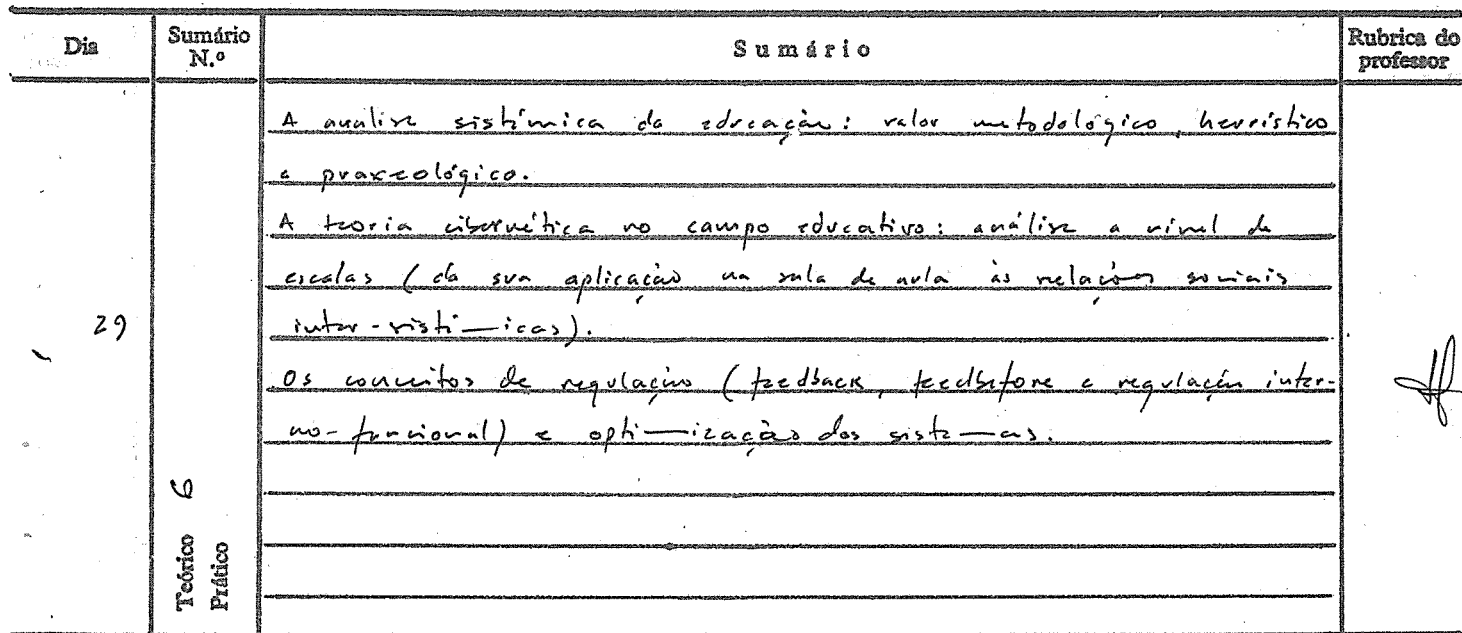 Dia
Sumário N.º
Sumário
Rubrica do professor
A analise sistémica da educação: valor metodológico, heurístico
e praxeológico.
A teoria cibernética no campo educativo: análise a nivel de
escalas (da sua aplicação na sala de aula às relações sociais
inter-sistémicas).
29
Os conceitos de regulação (feedback, feedbefore e regulação inter-
no-funcional) e optimização dos sistemas.
6
Teórico
Prático